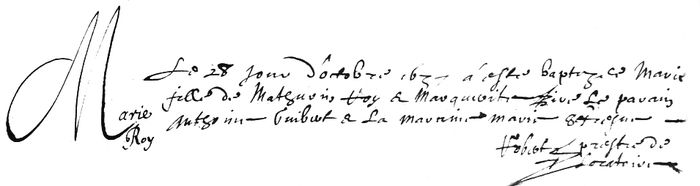 Marie
Roy
Le 28 jour d'octobre 1637 a este baptezee Marie
fille de Mathurin Roy & Marguerite le parain
Anthoine Guibert & la maraine marie
prestre